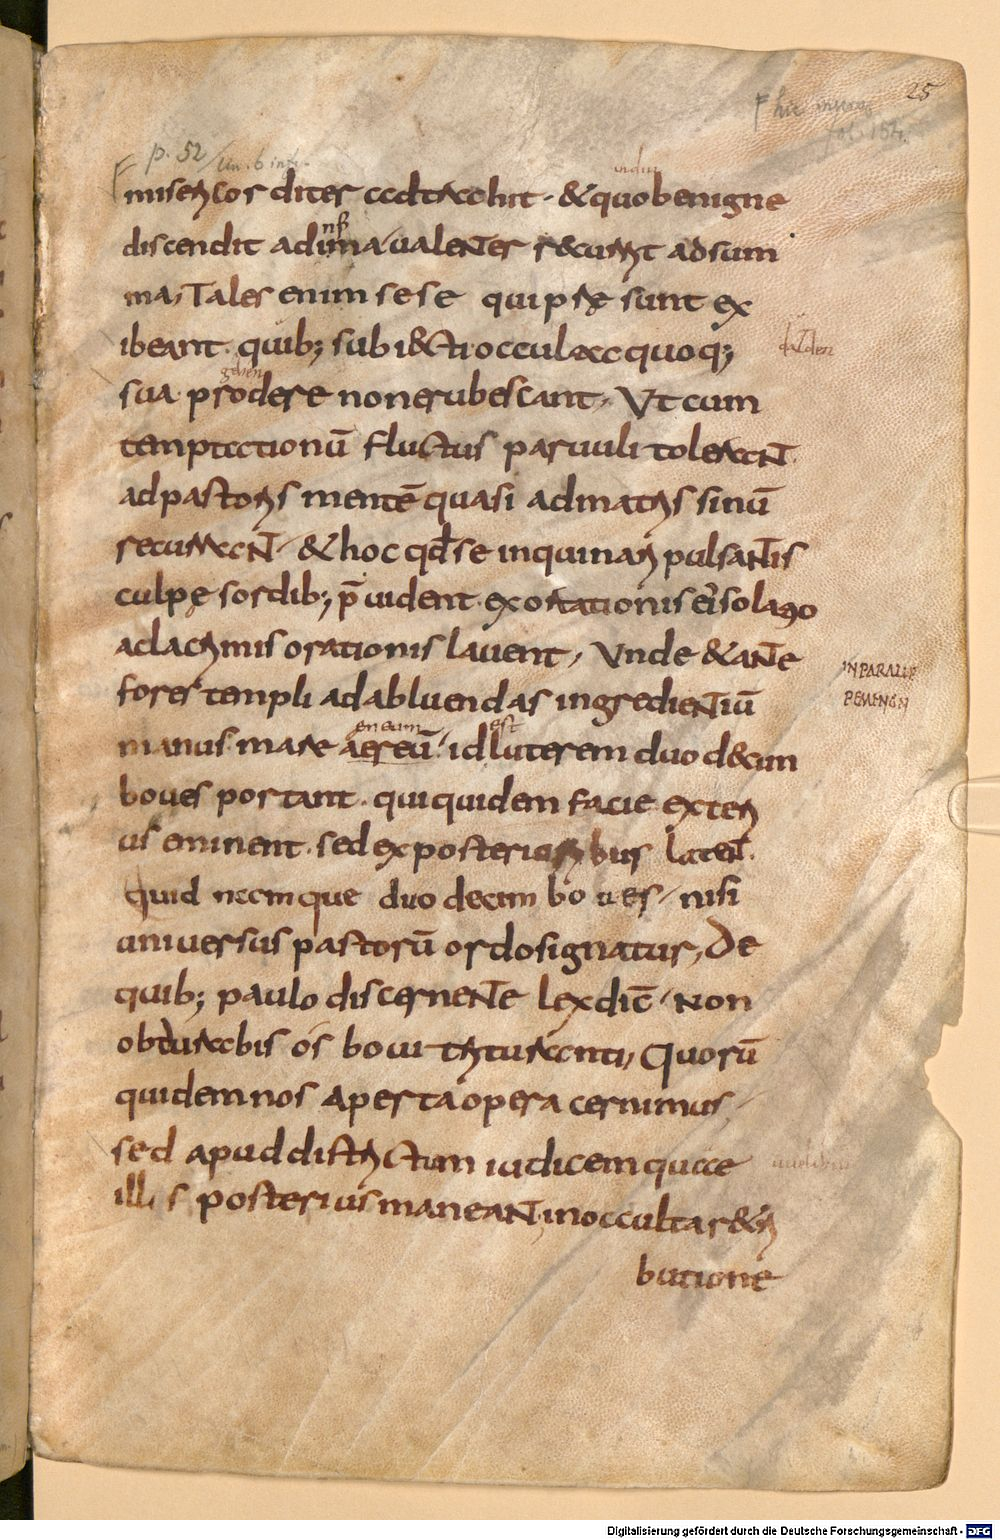 25
p. 52
misericorditer ad trahit · & quo benigne
nr̄
discendit ad ima / ualenter recurrit ad sum
ma, Tales enim se se qui pręsunt ex
ibeant · quib; subiecti occulta quoq;
sua prodere non erubescant, Ut cum
temptationū fluctus paruuli tolerant
ad pastoris mentē quasi ad matris sinū
recurrant / & hoc qd̄ se inquinari pulsantis
culpę sordib; p̄uident · exortationis ei solatio
ac lacrimis orationis lauent, Unde & ante
IN PARALIP
PEMENON
fores templi ad abluendas ingredientiū
eneum est
manus · mare aereū / id luterem duo decim
boues portant · qui quidem facie exteri
us eminent · sed ex posterioribus latent ·
quid namque duo decim boues / nisi
uniuersus pastorū ordo signatur, De
quib; paulo discernente lex dic̄ / Non
obturabis os boui trituranti, Quorū
quidem nos aperta opera cernimus /
sed apud districtum iudicem quae
illis posterius maneant, in occulta retri
butione
Digitalisierung gefördert durch die Deutsche Forschungsgemeinschaft - DFG